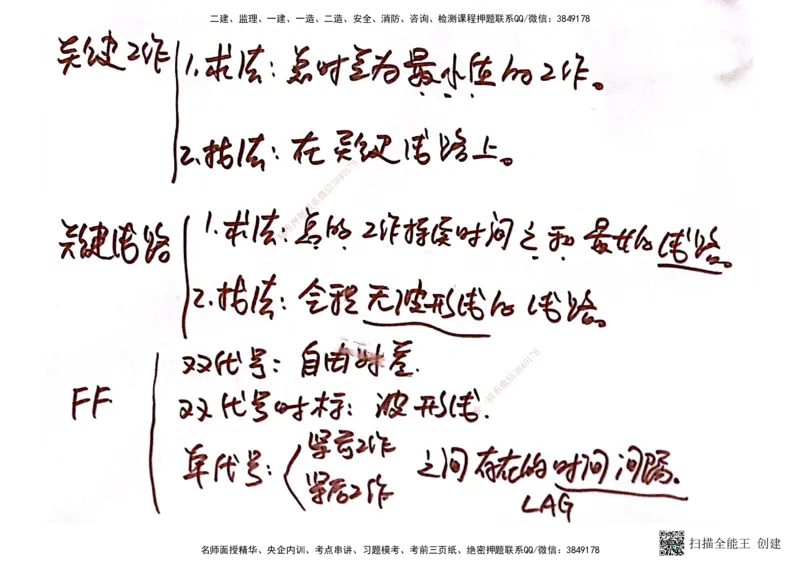 二建、监理、一建、一造、二造、安全、消防、咨询、检测课程押题联系QQ/微信：3849178
关键工作
1.求法：总时差为最小值的工作。
2.找法：在关键线路上。
关键线路
1.求法：总的工作持续时间之和最大的线路。
2.找法：全程无波形线的线路。
FF
双代号：自由时差.
双代号时标：波形线.
单代号：紧前工作 紧后工作 之间存在的时间间隔.
LAG
扫描全能王 创建
名师面授精华、央企内训、考点串讲、习题模考、考前三页纸、绝密押题联系QQ/微信：3849178